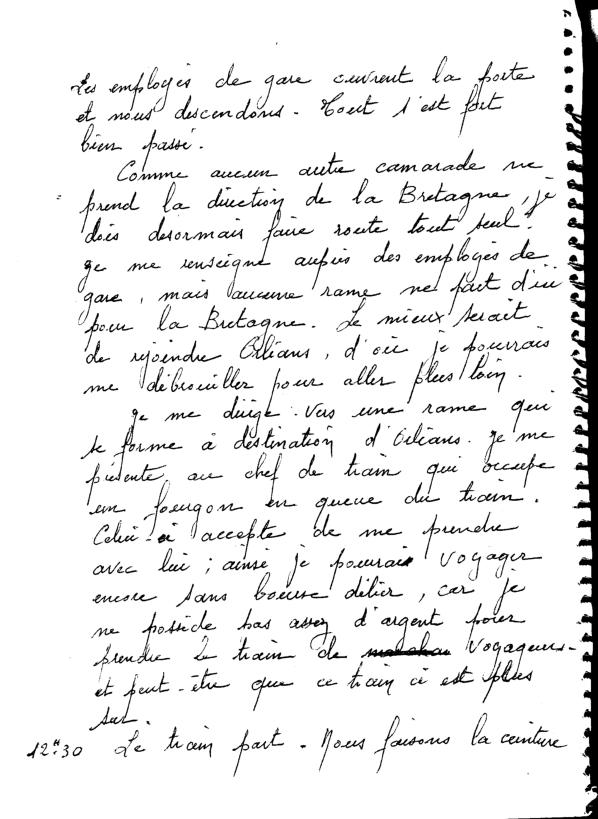 Les employés de gare ouvrent la porte
et nous descendons. Tout s'est fort
bien passé.
Comme aucun autre camarade ne
prend la direction de la Bretagne, je
dois desormais faire route tout seul.
Je me renseigne auprès des employés de
gare, mais aucune rame ne part d'ici
pour la Bretagne. Le mieux serait
de rejoindre Orléans, d'où je pourrais
me débrouiller pour aller plus loin.
Je me dirige vers une rame qui
se forme à destination d'Orléans. Je me
présente au chef de train qui occupe
un fourgon en queue du train.
Celui-ci accepte de me prendre
avec lui ; ainsi je pourrais voyager
encore sans bourse délier, car je
ne possède pas assez d'argent pour
prendre le train de voyageurs -
et peut-être que ce train ci est plus
sur.
12H:30 Le train part. Nous faisons la ceinture